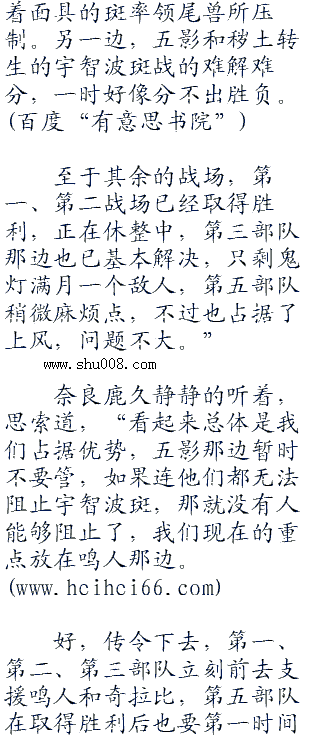 着面具的斑率领尾兽所压
制。另一边，五影和秽土转
生的宇智波斑战的难解难
分，一时好像分不出胜负。
(百度“有意思书院”)
至于其余的战场，第
一、第二战场已经取得胜
利，正在休整中，第三部队
那边也已基本解决，只剩鬼
灯满月一个敌人，第五部队
稍微麻烦点，不过也占据了
上风，问题不大。”
www.shu008.com
奈良鹿久静静的听着，
思索道，“看起来总体是我
们占据优势，五影那边暂时
不要管，如果连他们都无法
阻止宇智波斑，那就没有人
能够阻止了，我们现在的重
点放在鸣人那边。
(www.hcihci66.com)
好，传令下去，第一、
第二、第三部队立刻前去支
援鸣人和奇拉比，第五部队
在取得胜利后也要第一时间